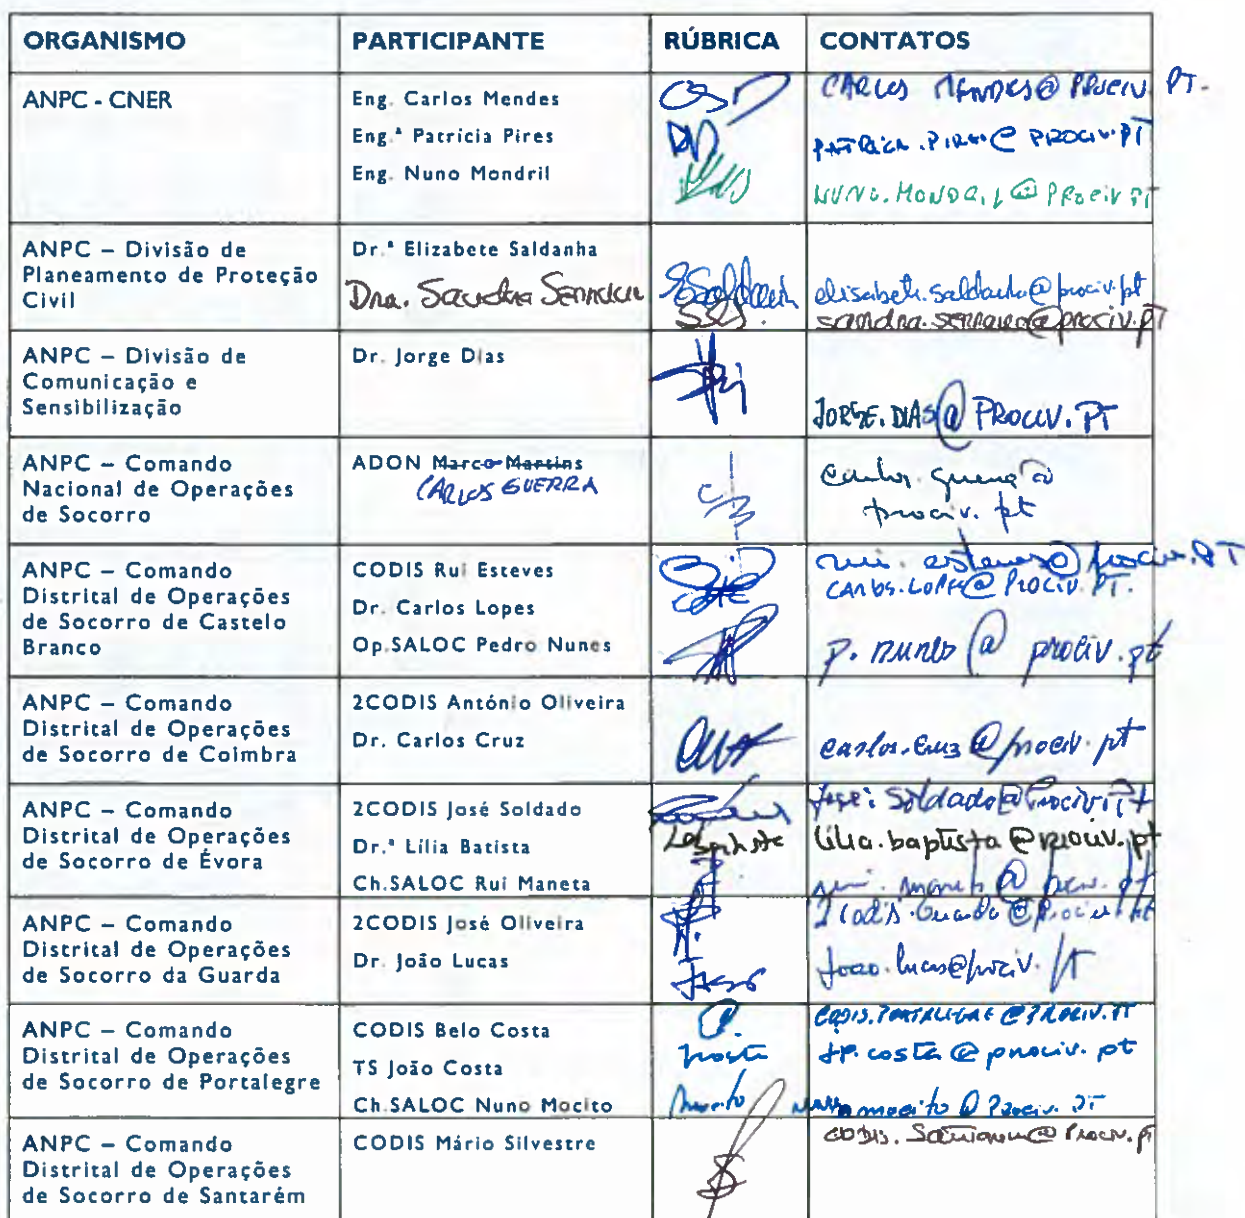 ORGANISMO PARTICIPANTE RÚBRICA CONTATOS
ANPC - CNER
Eng. Carlos Mendes
Eng.ª Patrícia Pires
Eng. Nuno Mondril
CARLOS MENDES@PROCIV.PT.
PATRICIA.PIRES@PROCIV.PT
NUNO.MONDRIL@PROCIV.PT
ANPC – Divisão de
Planeamento de Proteção
Civil
Dr.ª Elizabete Saldanha
Dra. Sandra Serrano
ESaldanha
elisabete.saldanha@prociv.pt
sandra.serrano@prociv.pt
ANPC – Divisão de
Comunicação e
Sensibilização
Dr. Jorge Dias
JORGE.DIAS@PROCIV.PT
ANPC – Comando
Nacional de Operações
de Socorro
ADON Marco Martins
CARLOS GUERRA
Carlos.guerra@
prociv.pt
ANPC – Comando
Distrital de Operações
de Socorro de Castelo
Branco
CODIS Rui Esteves
Dr. Carlos Lopes
Op.SALOC Pedro Nunes
rui.esteves@prociv.PT
CARLOS.LOPES@PROCIV.PT.
p.nunes@prociv.pt
ANPC – Comando
Distrital de Operações
de Socorro de Coimbra
2CODIS António Oliveira
Dr. Carlos Cruz
carlos.cruz@prociv.pt
ANPC – Comando
Distrital de Operações
de Socorro de Évora
2CODIS José Soldado
Dr.ª Lília Batista
Ch.SALOC Rui Maneta
jose.soldado@prociv.pt
lilia.baptista@prociv.pt
rui.maneta@prociv.pt
ANPC – Comando
Distrital de Operações
de Socorro da Guarda
2CODIS José Oliveira
Dr. João Lucas
2codis.Guarda@prociv.pt
joao.lucas@prociv.pt
ANPC – Comando
Distrital de Operações
de Socorro de Portalegre
CODIS Belo Costa
TS João Costa
Ch.SALOC Nuno Mocito
CODIS.PORTALEGRE@PROCIV.PT
jp.costa@prociv.pt
mocito@prociv.pt
ANPC – Comando
Distrital de Operações
de Socorro de Santarém
CODIS Mário Silvestre
CODIS.Santarem@Prociv.pt